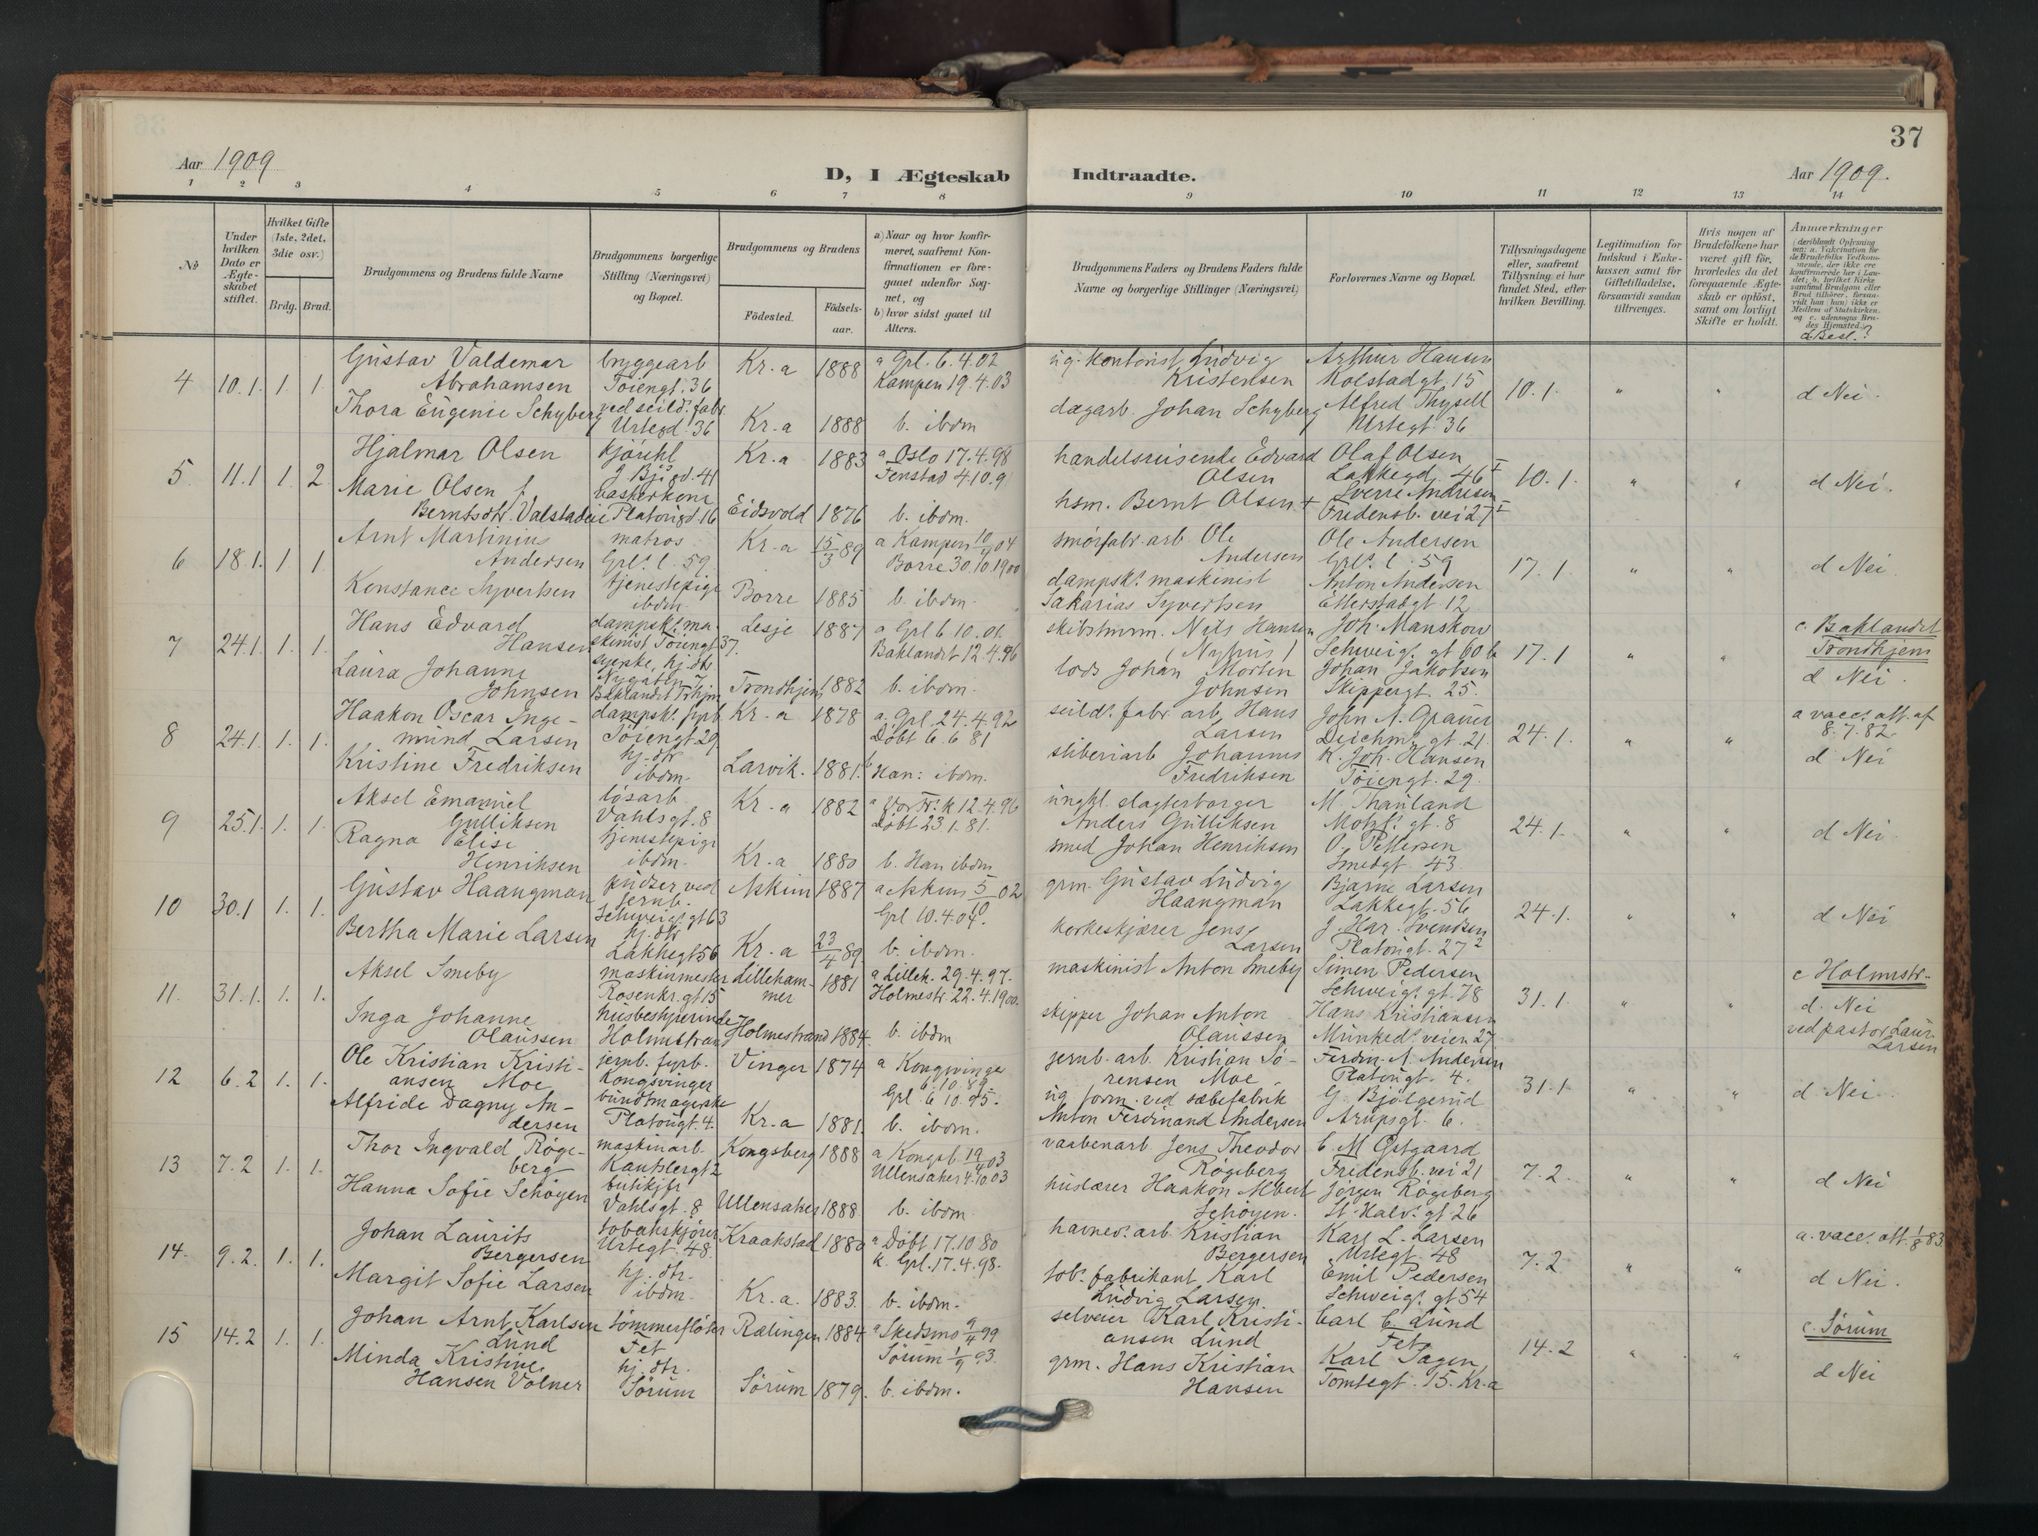 37
Aar 1909
D, I Ægteskab Indtraadte.
Aar 1909.
1 2 3 4 5 6 7 8 9 10 11 12 13 14
No
Under hvilken Dato er Ægteskabet stiftet.
Hvilket Gifte (1ste, 2det, 3die osv.)
Brdg. Brud.
Brudgommens og Brudens fulde Navne
Brudgommens borgerlige Stilling (Næringsvei) og Bopæl.
Brudgommens og Brudens
Födested.
Födselsaar.
a) Naar og hvor konfirmeret, saafremt Konfirmationen er foregaaet udenfor Sognet, og
b) hvor sidst gaaet til Alters.
Brudgommens Faders og Brudens Faders fulde Navne og borgerlige Stillinger (Næringsvei)
Forlovernes Navne og Bopæl.
Tillysningsdagene eller, saafremt Tillysning ei har fundet Sted, efter hvilken Bevilling.
Legitimation for Indskud i Enkekassen samt for Giftetilladelse, forsaavidt saadan tiltrænges.
Hvis nogen af Brudefolkene har været gift før, hvorledes da det foregaaende Ægteskab er opløst, samt om lovligt Skifte er holdt.
Anmærkninger
d Besl.?
4 10.1. 1. 1. Gustav Valdemar Abrahamsen bryggearb Töiengt. 36 Kr.a 1888 a Grl. 6.4.02 Kampen 19.4.03 ug. kontorist Ludvig Kristensen Arthur Hansen Kolstadgt. 15 10.1. " " d Nei.
Thora Eugenie Schyberg ved seild. fabr. Urtegd 36 Kr.a 1888 b. ibdm dagarb. Johan Schyberg Alfred Thysell Urtegt. 36
5 11.1 1. 2 Hjalmar Olsen kjørekl Kr.a 1883 a Oslo 17.4.98 Fenstad 4.10.9 handelsreisende Edvard Olsen Olaf Olsen Lakkegd. 46 I 10.1 " " d Nei.
Marie Olsen f. Berntsdtr. Valstadeie Platöugd 16 Eidsvold 1876 b. ibdm. hsm. Bernt Olsen + Sverre Andresen Fredensb. vei 27 I
6 18.1. 1 1 Arnt Martinius Andersen matros Grl. l. 59. Kr.a 15/3 89 a Kampen 10/4 04 Borre 30.10.1900 smørfabr. arb. Ole Andersen Ole Andersen Grl. l. 59 17.1. " " d Nei.
Konstance Syvertsen tjenestepige ibdm. Borre 1885 b. ibdm. dampsk. maskinist Sakarias Syvertsen Anton Andersen Etterstadgt 12
7 24.1. 1. 1. Hans Edvard Hansen dampsk. maskinist Töiengt 37. Lesje 1887 a Grl 6.10.01. Baklandet 12.4.96 skibstømm. Nils Hansen (Nyhus) Joh. Manskow Schweig. gt 60 b 17.1 " " c. Baklandet Trondhjem d Nei.
Laura Johanne Johnsen syerske, hj. dtr Nygaten 7 Baklandet Trhjm Trondhjem 1882 b. ibdm. lods Johan Morten Johnsen Johan Jakobsen Skippergt. 25.
8 24.1. 1. 1. Haakon Oscar Ingemund Larsen dampsk. fyrb Töiengt 29. Kr.a 1878 a. Grl. 24.4.92 Døbt 6.6.81 seild. fabr. arb. Hans Larsen John A. Graner Deichm. gt. 21. 24.1. " " a vacc. att. af 8.7.82. d Nei
Kristine Fredriksen hj. dtr ibdm. Larvik. 1881. b Han: ibdm. sliberiarb Johannes Fredriksen K. Joh. Hansen Töiengt. 29.
9 25.1. 1. 1. Aksel Emanuel Gulliksen løsarb Vahlsgt. 8 Kr.a 1882 a Vor Fr. k 12.4.96 Døbt 23.1.81. ungkl. slagterborger Anders Gulliksen M. Thauland Motzf. gt. 8 24.1. " " d Nei.
Ragna Elise Henriksen tjenestepige ibdm. Kr.a 1880 b. Han ibdm smed Johan Henriksen O. Pettersen Smedgt. 43
10 30.1 1. 1. Gustav Haangman pudser ved jernb. Schweig. gt 63 Askim 1887 a Askim 5/10 02 Grl 10.4.04. grm. Gustav Ludvig Haangman Bjarne Larsen Lakkegt. 56 24.1. " " d Nei
Bertha Marie Larsen hj. dtr Lakkegt 56 Kr.a 23/4 89 b. ibdm. korkeskjærer Jens Larsen J. Har. Svendsen Platöugt. 27 2
11. 31.1. 1. 1. Aksel Smeby maskinmester Rosenkr. gt 15 Lillehammer 1881 a Lilleh. 29.4.97. Holmestr. 22.4.1900. maskinist Anton Smeby Simen Pedersen Schweig. gt. 78 31.1. " " c Holmestr. d. Nei ved pastor Laur. Larsen
Inga Johanne Olaussen husbestyrerinde Holmestrand Holmestrand 1884. b. ibdm skipper Johan Anton Olaussen Hans Kristiansen Munked. veien 27.
12 6.2 1. 1. Ole Kristian Kristiansen Moe jernb. fyrb. Kongsvinger Vinger 1874 a Kongsvinger 6.10.89 Grl. 6.10.95. jernb. arb. Kristian Sørensen Moe. Ferdn. A. Andersen Platöugt. 4. 31.1 " " d Nei.
Alfride Dagny Andersen buntmagerske Platöugt. 4. Kr.a 1881. b. ibdm. ug form. ved sæbefabrik Anton Ferdinand Andersen G. Bjölgerud Arupsgt. 6.
13 7.2 1. 1. Thor Ingvald Røgeberg maskinarb. Kantslergt 2 Kongsberg 1888 a Kongsb. 19/4 03 Ullensaker 4.10.03 vaabenarb Jens Theodor Røgeberg C. M. Østgaard Fredensb. vei 21 7.2. " " d Nei
Hanna Sofie Schøyen butikjfr Vahlsgt. 8 Ullensaker 1888 b. ibdm. huslærer Haakon Albert Schøyen. Jørgen Røgeberg St. Halv. gt 26
14. 9.2. 1. 1. Johan Laurits Bergersen tobakskjører Urtegt. 48. Kraakstad 1880 a Døbt 17.10.80 k. Grl. 17.4.98. havnev. arb. Kristian Bergersen Karl L. Larsen Urtegt. 48 7.2 " " a. vacc. att. 1/8 83. d Nei.
Margit Sofie Larsen hj. dtr. ibdm. Kr.a. 1883. b. ibdm. tob. fabrikant Karl Ludvig Larsen. Emil Pedersen Schweig. gt 54
15 14.2 1. 1. Johan Arnt Karlsen Lund tømmerfløter Fet Rælingen 1884. a Skedsmo 9/4 99 Sørum 1/9 93. selveier Karl Kristiansen Lund Carl C. Lund Fet 14.2 " " c. Sørum d Nei
Minda Kristine Hansen Volner hj. dtr. Sørum Sørum 1879. b. ibdm. grm. Hans Kristian Hansen Karl Sagen, Tomtegt. 15. Kr.a